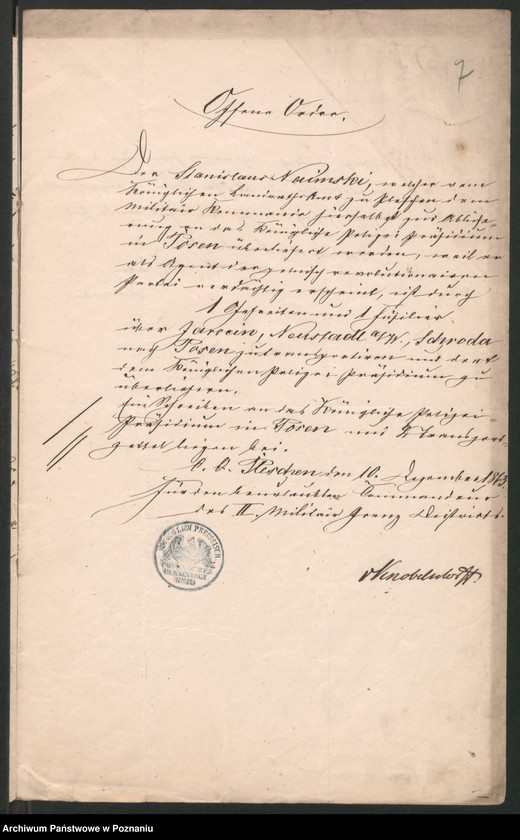 7
Offene Order.
Der Stanislaus Naimski, welcher vom
Königlichen Landraths Amt zu Pleschen dem
Militair Kommando hierselbst zur Abliefe-
rung an das Königliche Polizei Präsidium
in Posen überliefert worden, weil er
als Agent der polnisch revolutionairen
Partei verdächtig erscheint, ist durch
1 Gefreiten und 1 Füsilier
über Jarocin, Neustadt a/W, Schroda
nach Posen zu transportiren und dort
dem Königlichen Polizei Präsidium zu
überliefern.
Ein Schreiben an das Königliche Polizei-
Präsidium in Posen und 2 Transport-
zettel liegen bei.
Pleschen den 10. Dezember 1863
Für den beurlaubten Commandeur
des II. Militair Grenz Distrikts.
v Knobelsdorff.
KÖNIGLICH PREUSSISCH
Archiwum Państwowe w Poznaniu